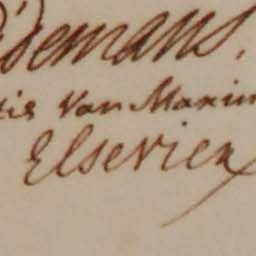 demans,
tis van Marin
Elsevier